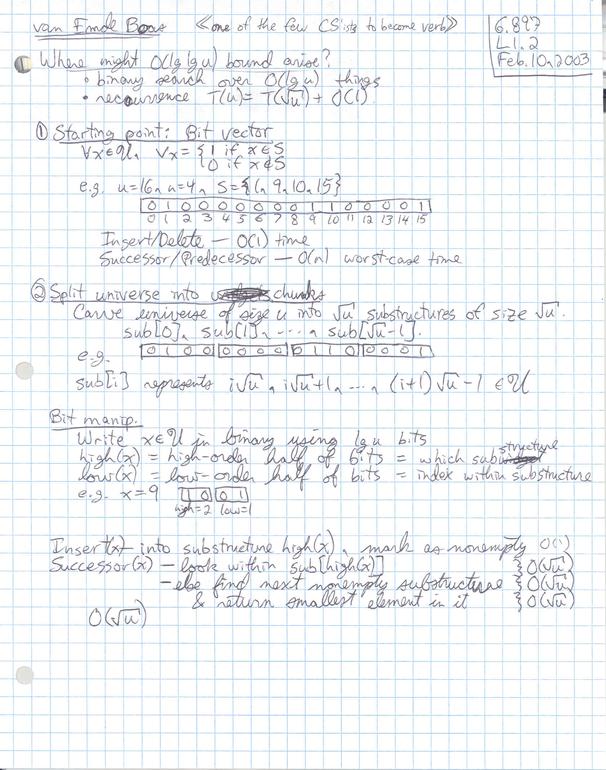 van Emde Boas <<one of the few CS'ists to become verb>>
6.897
L1.2
Feb.10,2003
Where might O(lg lg u) bound arise?
• binary search over O(lg u) things
• recurrence T(u) = T(√u) + O(1)
① Starting point: Bit vector
∀x∈U, Vx = { 1 if x∈S
0 if x∉S
e.g. u=16, n=4, S={1, 9, 10, 15}
0 1 0 0 0 0 0 0 0 1 1 0 0 0 0 1
0 1 2 3 4 5 6 7 8 9 10 11 12 13 14 15
Insert/Delete — O(1) time
Successor/Predecessor — O(n) worst-case time
② Split universe into chunks
Carve universe of size u into √u substructures of size √u.
sub[0], sub[1], ..., sub[√u-1].
e.g. 0 1 0 0 0 0 0 0 0 1 1 0 0 0 0 1
sub[i] represents i√u, i√u+1, ..., (i+1)√u-1 ∈U
Bit manip.
Write x∈U in binary using lg u bits
high(x) = high-order half of bits = which substructure
low(x) = low-order half of bits = index within substructure
e.g. x=9 1 0 0 1
high=2 low=1
Insert(x) — into substructure high(x), mark as nonempty O(1)
Successor(x) — look within sub[high(x)] } O(√u)
— else find next nonempty substructure } O(√u)
& return smallest element in it } O(√u)
O(√u)